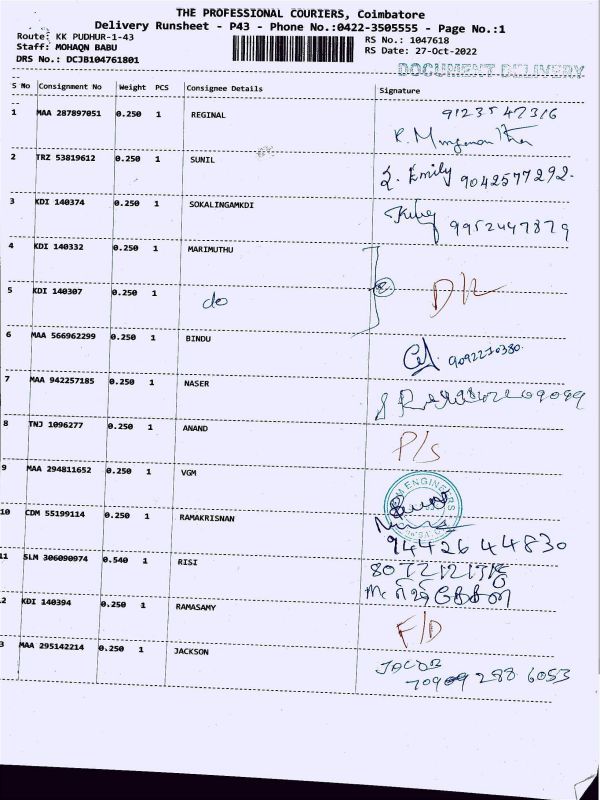 THE PROFESSIONAL COURIERS, Coimbatore
Delivery Runsheet - P43 - Phone No.:0422-3505555 - Page No.:1
Route: KK PUDHUR-1-43
RS No.: 1047618
Staff: MOHAQN BABU
RS Date: 27-Oct-2022
DRS No.: DCJB104761801
DOCUMENT DELIVERY
S No Consignment No Weight PCS Consignee Details Signature
1 MAA 287897051 0.250 1 REGINAL 9123547316
2 TRZ 53819612 0.250 1 SUNIL Emily 9042577292.
3 KDI 140374 0.250 1 SOKALINGAMKDI 9952447879
4 KDI 140332 0.250 1 MARIMUTHU
5 KDI 140307 0.250 1 do D/L
6 MAA 566962299 0.250 1 BINDU 9092230380
7 MAA 942257185 0.250 1 NASER
8 TNJ 1096277 0.250 1 ANAND P/S
9 MAA 294811652 0.250 1 VGM
ENGINEERS
10 CDM 55199114 0.250 1 RAMAKRISNAN
9442644830
11 SLM 306090974 0.540 1 RISI
2 KDI 140394 0.250 1 RAMASAMY F/D
3 MAA 295142214 0.250 1 JACKSON JACOB
288 6053